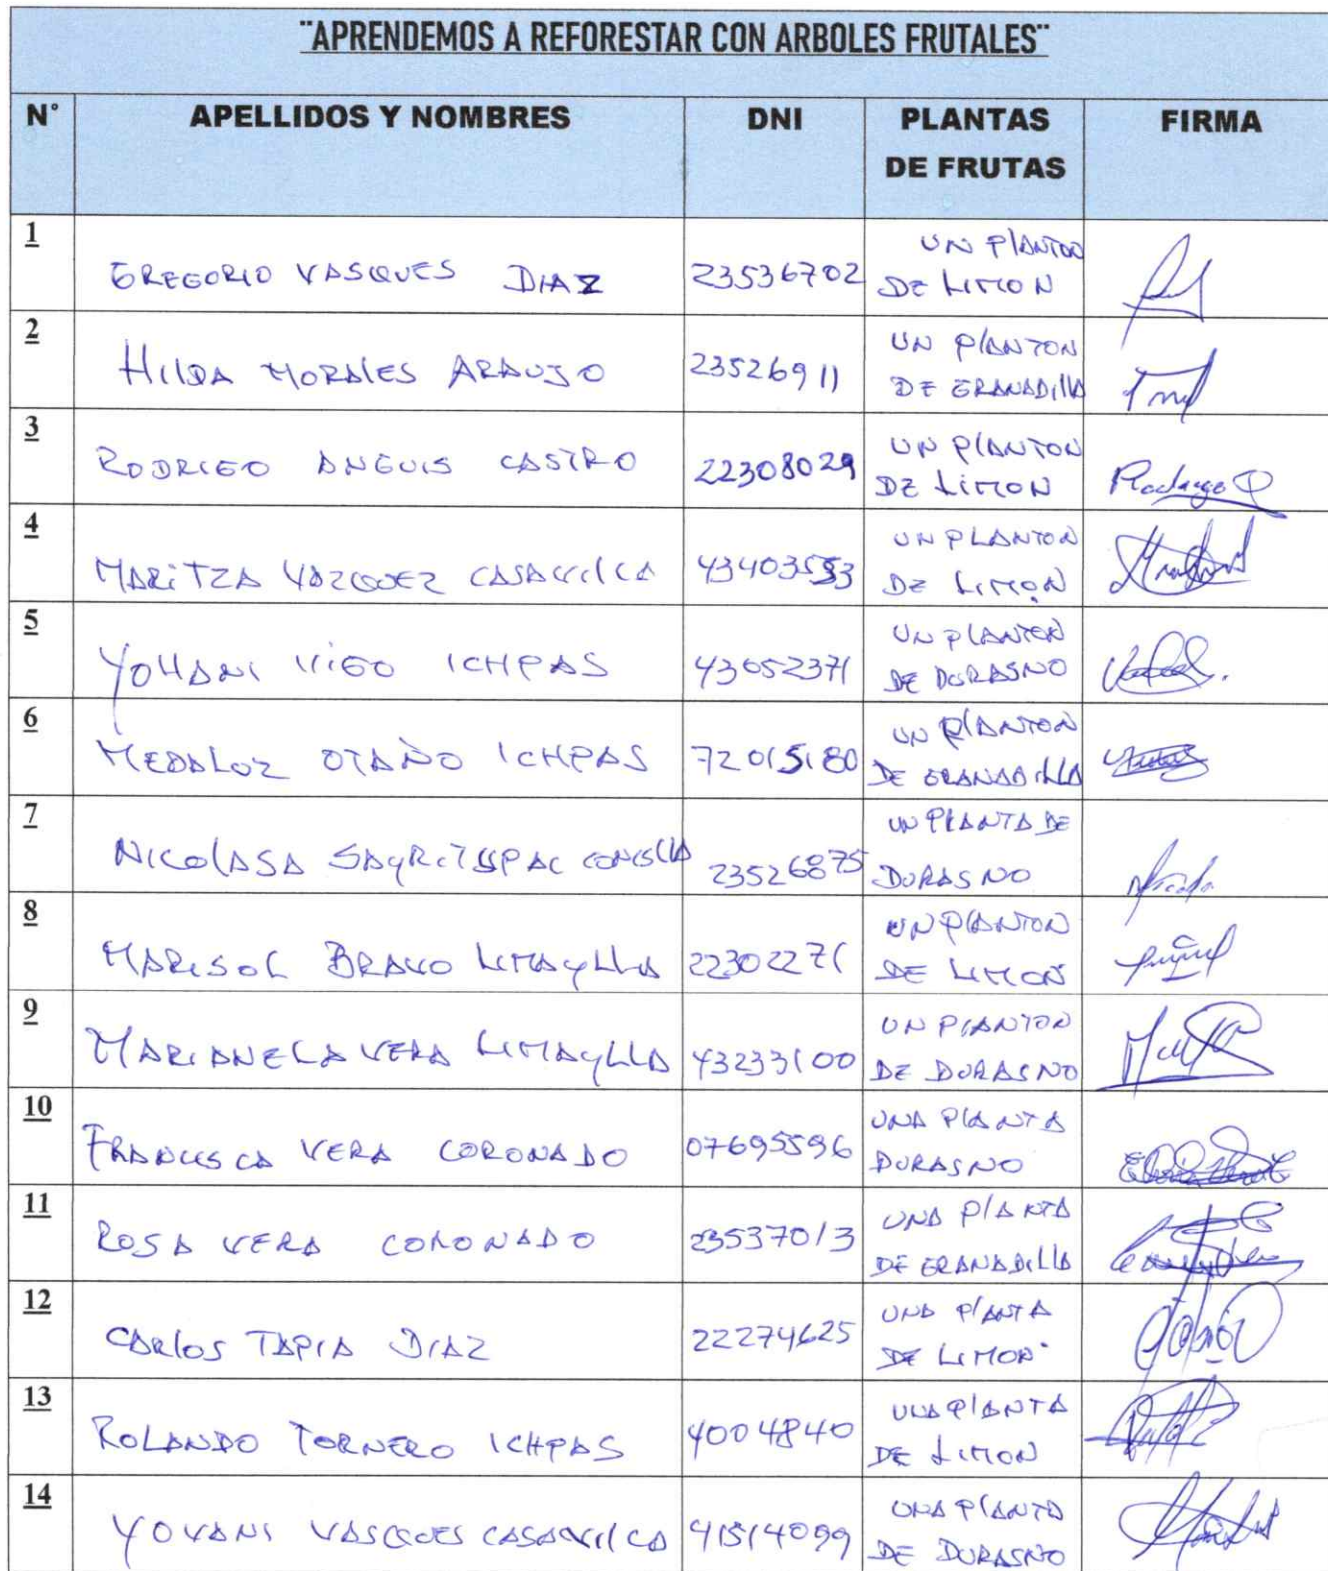 "APRENDEMOS A REFORESTAR CON ARBOLES FRUTALES"
N° APELLIDOS Y NOMBRES DNI PLANTAS DE FRUTAS FIRMA
1 GREGORIO VASQUES DIAZ 23536702 UN PlANTON DE LIMON
2 HIlDA MORAlES ARAUJO 23526911 UN PlANTON DE GRANADIllA
3 RODRIGO ANGUIS CASTRO 22308029 UN PlANTON DE LiMON Rodrigo
4 MARiTZA VAZQUEZ CASAVilCA 43403553 UN PLANTON DE LIMON
5 YOHANI ViGO ICHPAS 43052371 UN PlANTON DE DURASNO
6 MEDALUZ OTAÑO ICHPAS 72015180 UN PlANTON DE GRANADIllA
7 NICOlASA SAyRiTUPAC 23526875 UN PLANTA DE DURASNO
8 MARISOL BRAVO LIMAyLLA 22302271 UN PlANTON DE LIMON
9 MARIANELA VERA LIMAyLLA 43233100 UN PlANTON DE DURASNO
10 FRANCISCA VERA CORONADO 07695596 UNA PlANTA DURASNO
11 ROSA VERA CORONADO 23537013 UNA PlANTA DE GRANADIllA
12 CARlOS TAPIA DIAZ 22274625 UNA PlANTA DE LIMON
13 ROLANDO TORNERO ICHPAS 4004840 UNA PlANTA DE LIMON
14 YOVANI VASQUES CASAVIlCA 41514099 UNA PlANTA DE DURASNO